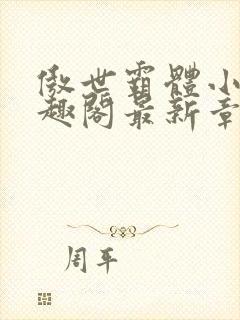 傲世霸體小
趣閣最新章
周平